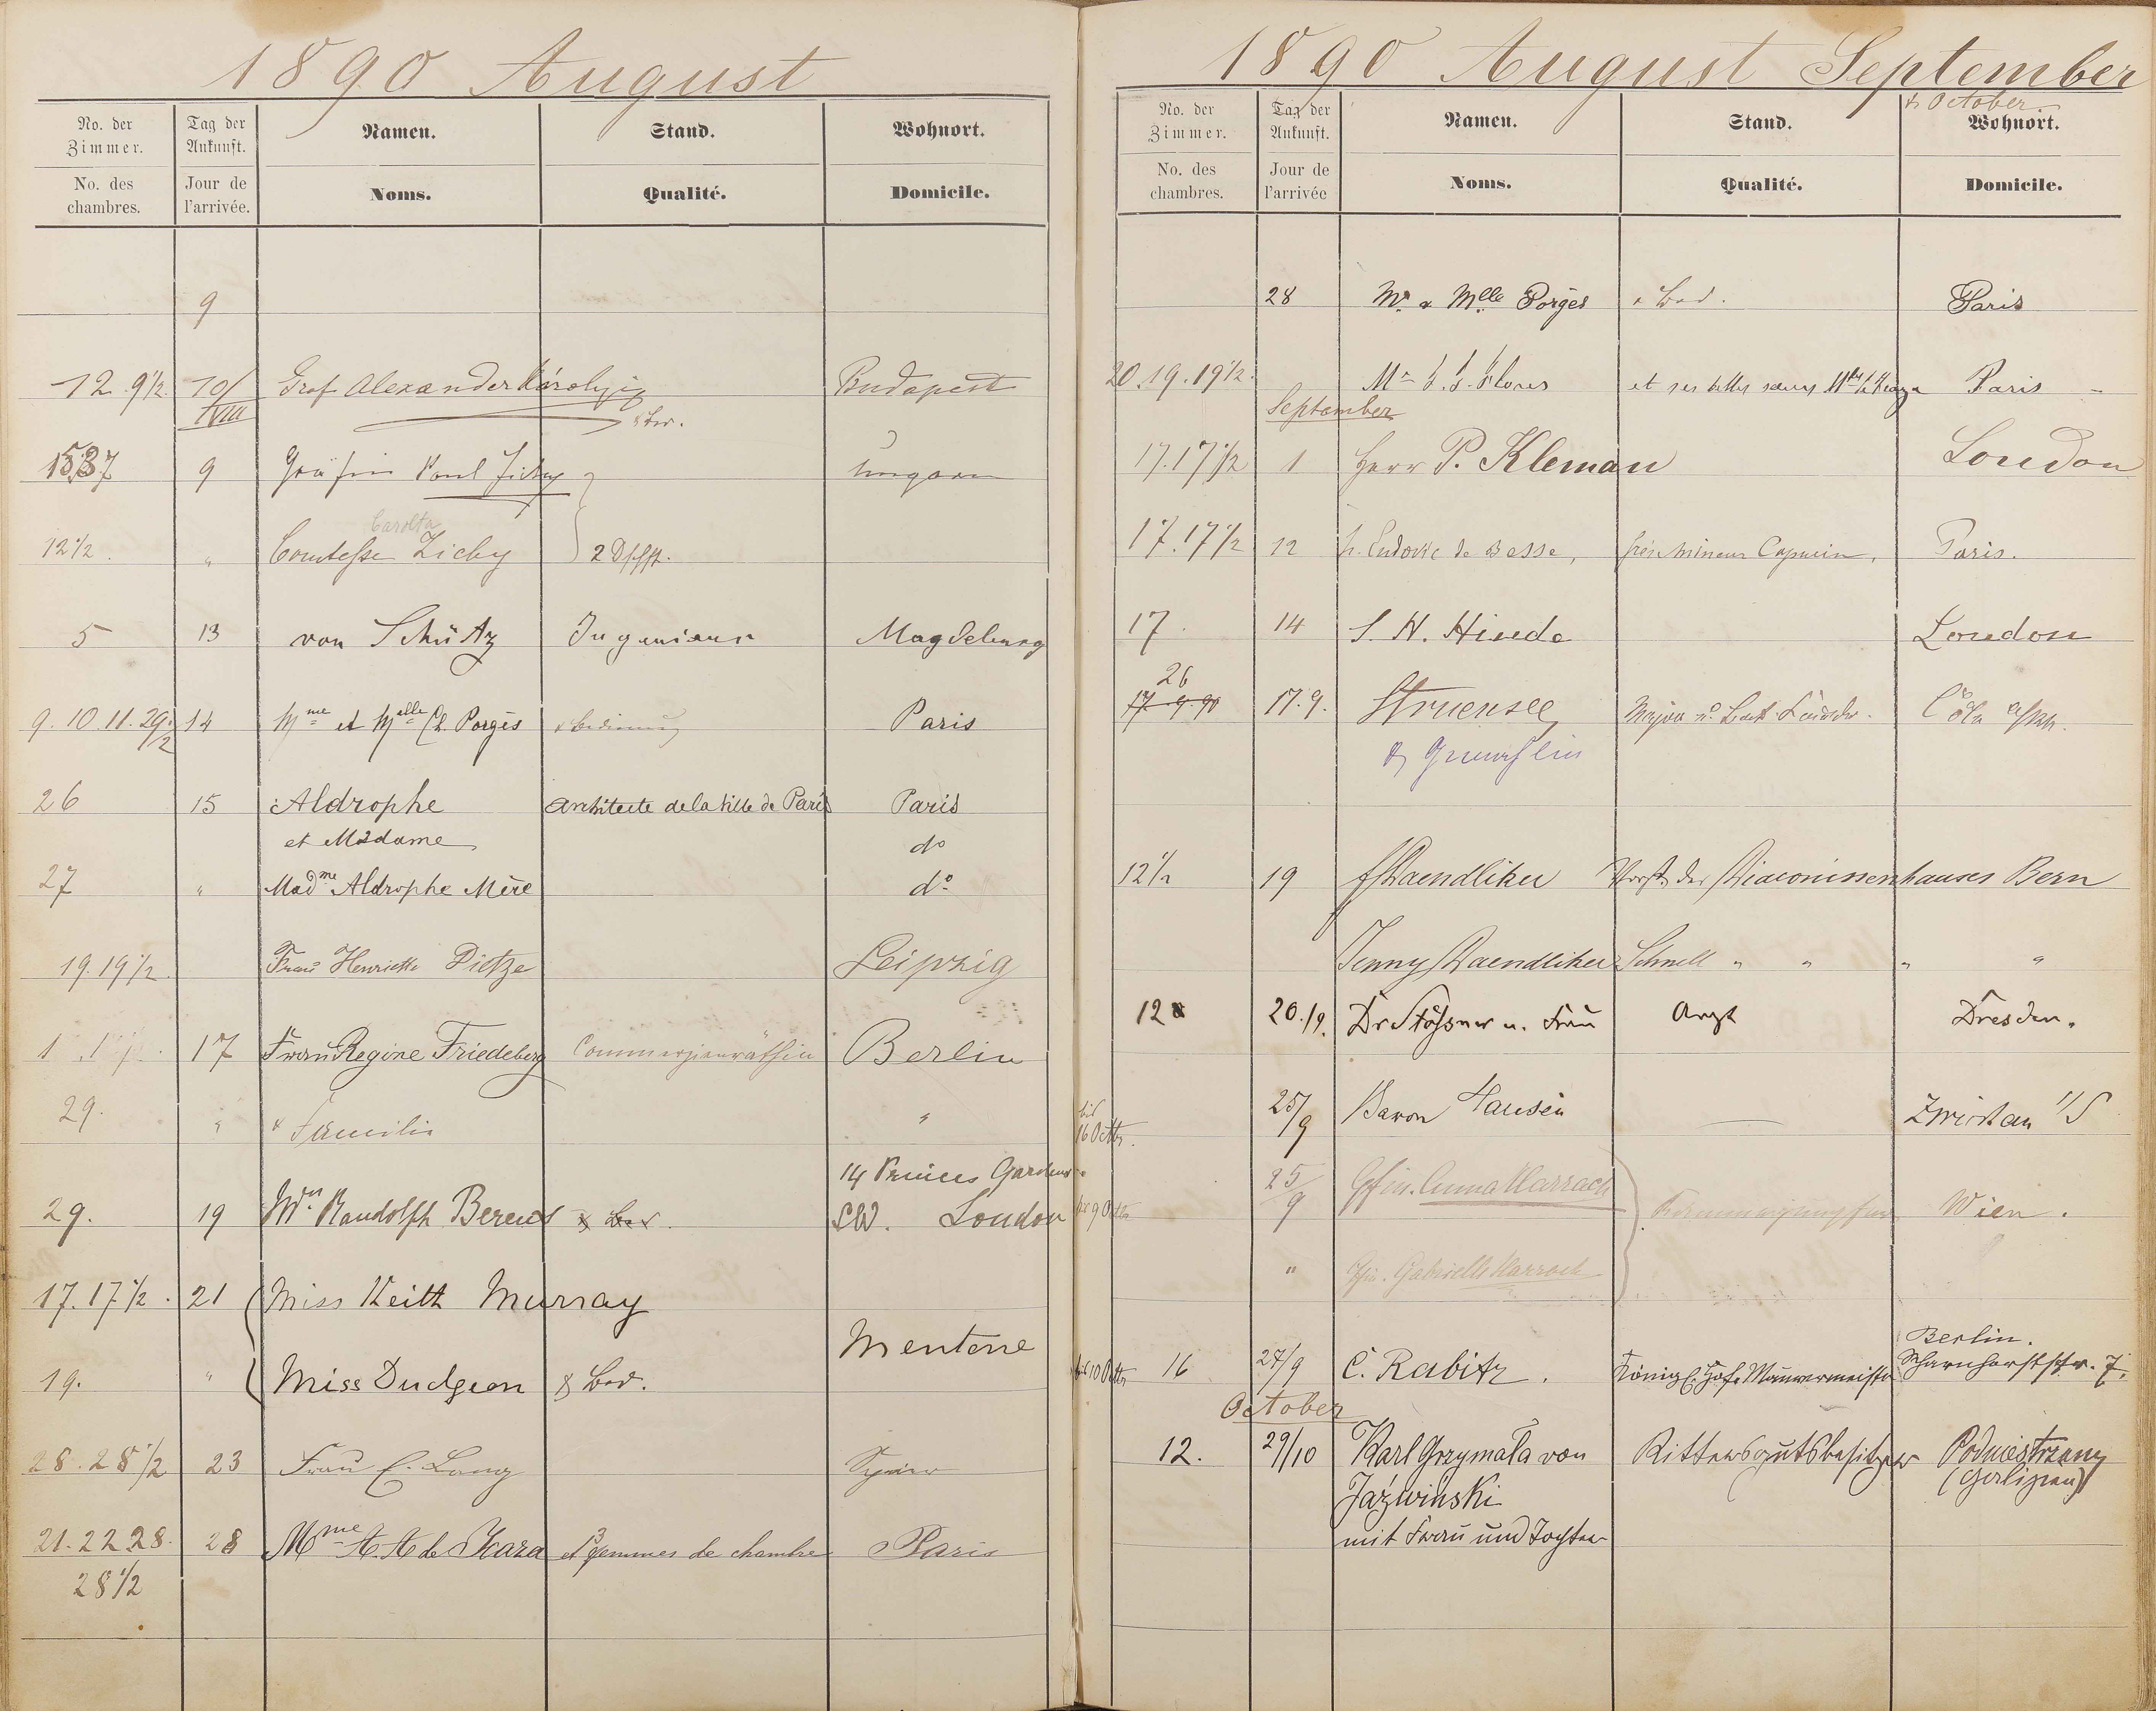 1890 August
No. der Zimmer. Tag der Ankunft. Namen. Stand. Wohnort.
No. des chambres. Jour de l'arrivée. Noms. Qualité. Domicile.
9
12. 9 1/2. 10/VIII Graf Alexander Károlyi Budapest
& Bed.
9 Gräfin Paul Zichy Ungarn
Carolta
12 1/2. " Comtesse Zichy 2
5 13 von Schütz Ingenieur Magdeburg
9. 10. 11. 29 1/2 14 Mme et Melle Ch. Porgès & Bedienung Paris
26 15 Aldrophe Architecte de la Ville de Paris Paris
et Madame do
27 " Madme Aldrophe Mère do.
19. 19 1/2 Frau Henriette Dietze Leipzig
1 17 Frau Regine Friedeberg Commerzienräthin Berlin
29. " & Familie "
14 Princes Gardens
29. 19 Mrs. Randolph Berens & Bed. SW. London
17. 17 1/2. 21 Miss Keith Murray
Mentone
19. " Miss Dudgeon & Bed.
28. 28 1/2 23 Frau E. Lang
21. 22 28. 28 Mme A. A. de et 3 femmes de chambre Paris
28 1/2
1890 August September
& October.
No. der Zimmer. Tag der Ankunft. Namen. Stand. Wohnort.
No. des chambres. Jour de l'arrivée Noms. Qualité. Domicile.
28 Mr. & Melle Porgès & Bed. Paris
20. 19. 19 1/2. Mr Flores et ses belles soeurs Paris
September
17. 17 1/2 1 Herr P. Kleman London
17. 17 1/2 12 Ludovic de Besse, frère Mineur Capucin, Paris.
17. 14 S. H. Hinde London
26
17 9 90 17. 9. Struensee Major Cöln a/Rh.
& Gemahlin
12 1/2 19 Daendliker Vorst. des Diaconissenhauses Bern
Jenny Daendliker Schnell " " " "
12 20./9. Dr Stössner u. Frau Arzt Dresden.
bis
16 Octbr. 25/9 Baron Hausen Zwickau i/S
bis 9 Octbr 25/9 Gfin. Anna Harrach Wien.
" Gfin. Gabrielle Harrach
Berlin.
bis 10 Octbr 16 27/9 C. Rabitz. Königl. Hof-Maurermeister Scharnhorststr. 7.
October
12. 29/10 Karl Grzymała von Rittergutsbesitzer Podniestrzany
Jaźwinski (Galizien)
mit Frau und Tochter